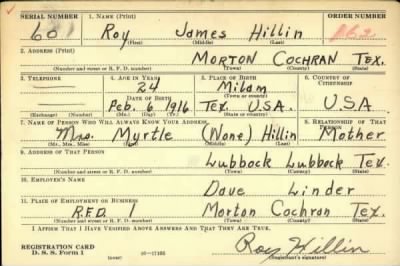 SERIAL NUMBER 1. NAME (Print) ORDER NUMBER
601 Roy James Hillin 162
(First) (Middle) (Last)
2. ADDRESS (Print)
MORTON COCHRAN TEX.
(Number and street or R. F. D. number) (Town) (County) (State)
3. TELEPHONE 4. AGE IN YEARS 5. PLACE OF BIRTH 6. COUNTRY OF CITIZENSHIP
— 24 Milam
DATE OF BIRTH (Town or county)
— Feb. 6, 1916 Tex. U.S.A. U.S.A
(Exchange) (Number) (Mo.) (Day) (Yr.) (State or country)
7. NAME OF PERSON WHO WILL ALWAYS KNOW YOUR ADDRESS 8. RELATIONSHIP OF THAT PERSON
Mrs. Myrtle (None) Hillin Mother
(Mr., Mrs., Miss) (First) (Middle) (Last)
9. ADDRESS OF THAT PERSON
Lubbock Lubbock Tex.
(Number and street or R. F. D. number) (Town) (County) (State)
10. EMPLOYER'S NAME
Dave Linder
11. PLACE OF EMPLOYMENT OR BUSINESS
R.F.D. Morton Cochran Tex.
(Number and street or R. F. D. number) (Town) (County) (State)
I AFFIRM THAT I HAVE VERIFIED ABOVE ANSWERS AND THAT THEY ARE TRUE.
Roy Hillin
REGISTRATION CARD
D. S. S. Form 1 (over) (Registrant's signature)